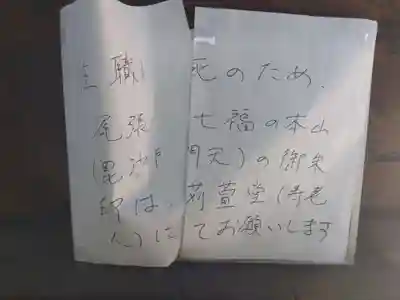 主職 死のため.
尾張 七福の本山
(毘沙門天)の御朱
印は、苅萱堂(寿老
人)にてお願いします